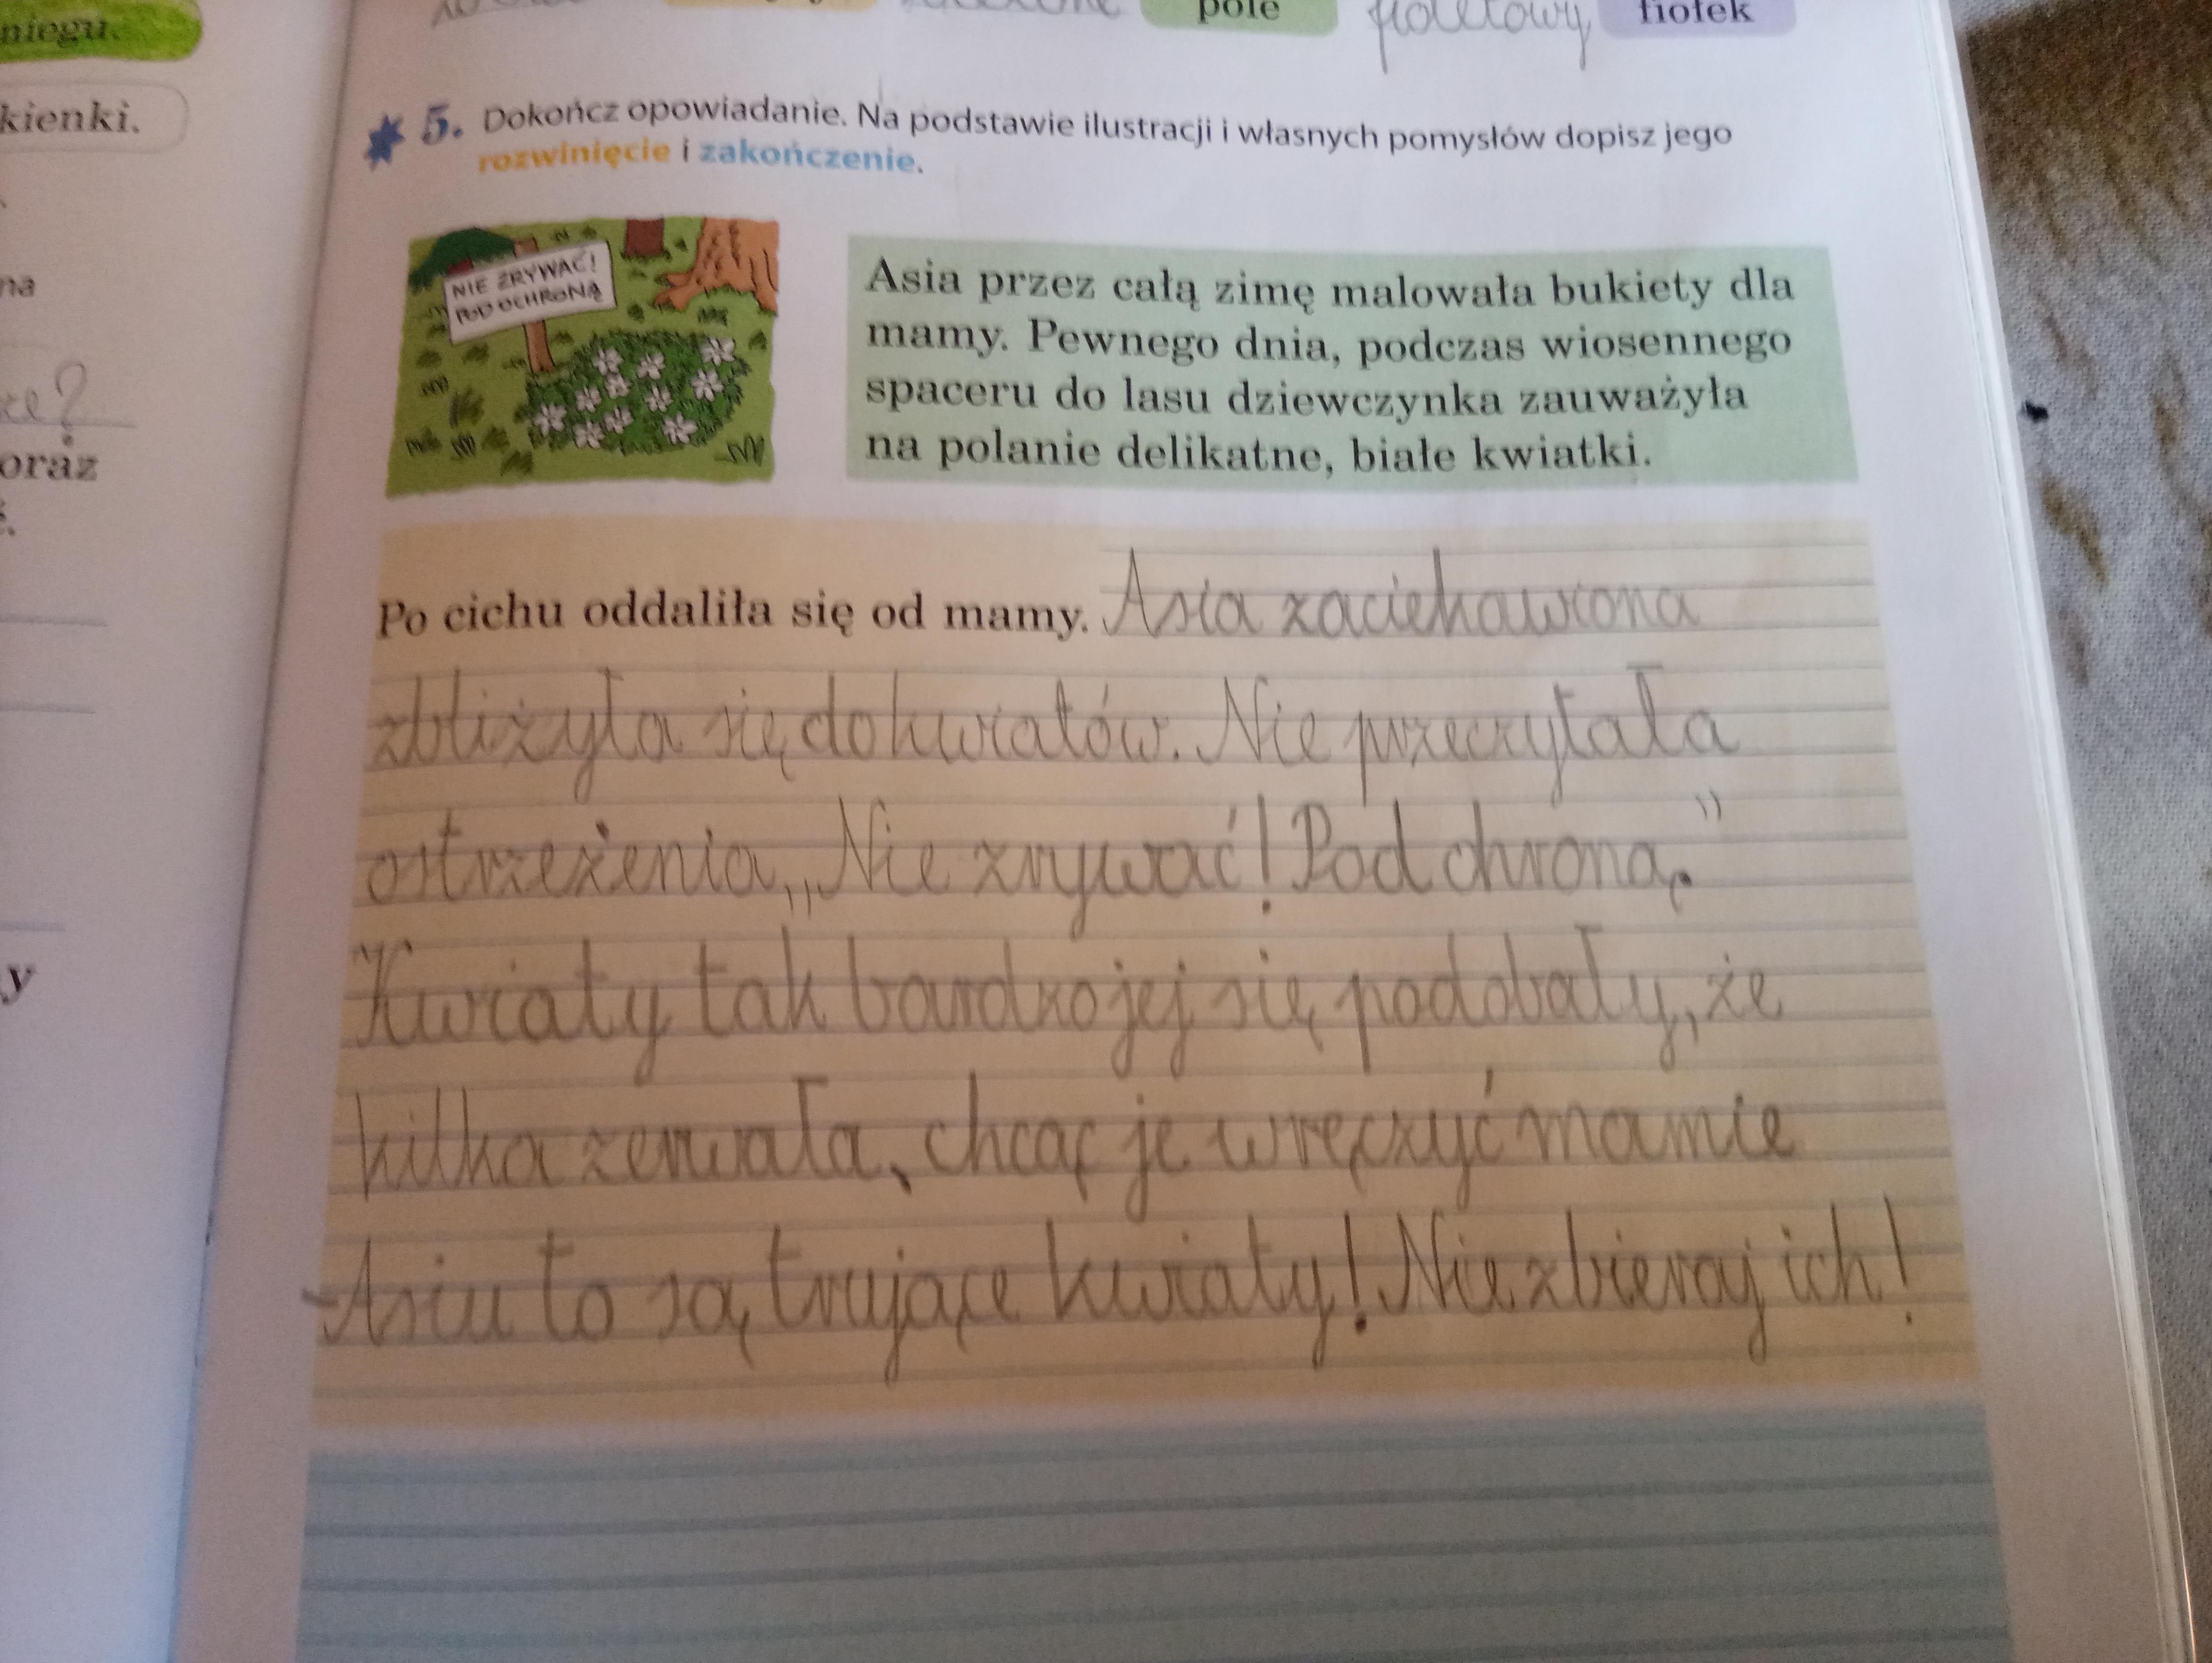 niegu.
kienki.
na
oraz
y
pole
fioletowy
fiołek
5. Dokończ opowiadanie. Na podstawie ilustracji i własnych pomysłów dopisz jego
rozwinięcie i zakończenie.
NIE ZRYWAĆ!
POD OCHRONĄ
Asia przez całą zimę malowała bukiety dla
mamy. Pewnego dnia, podczas wiosennego
spaceru do lasu dziewczynka zauważyła
na polanie delikatne, białe kwiatki.
Po cichu oddaliła się od mamy. Asia zaciekawiona
zbliżyła się do kwiatów. Nie przeczytała
ostrzeżenia,,,Nie zrywać! Pod chroną."
Kwiaty tak bardzo jej się podobały, że
kilka zerwała, chcąc je wręczyć mamie
-Asiu to są trujące kwiaty! Nie zbieraj ich!